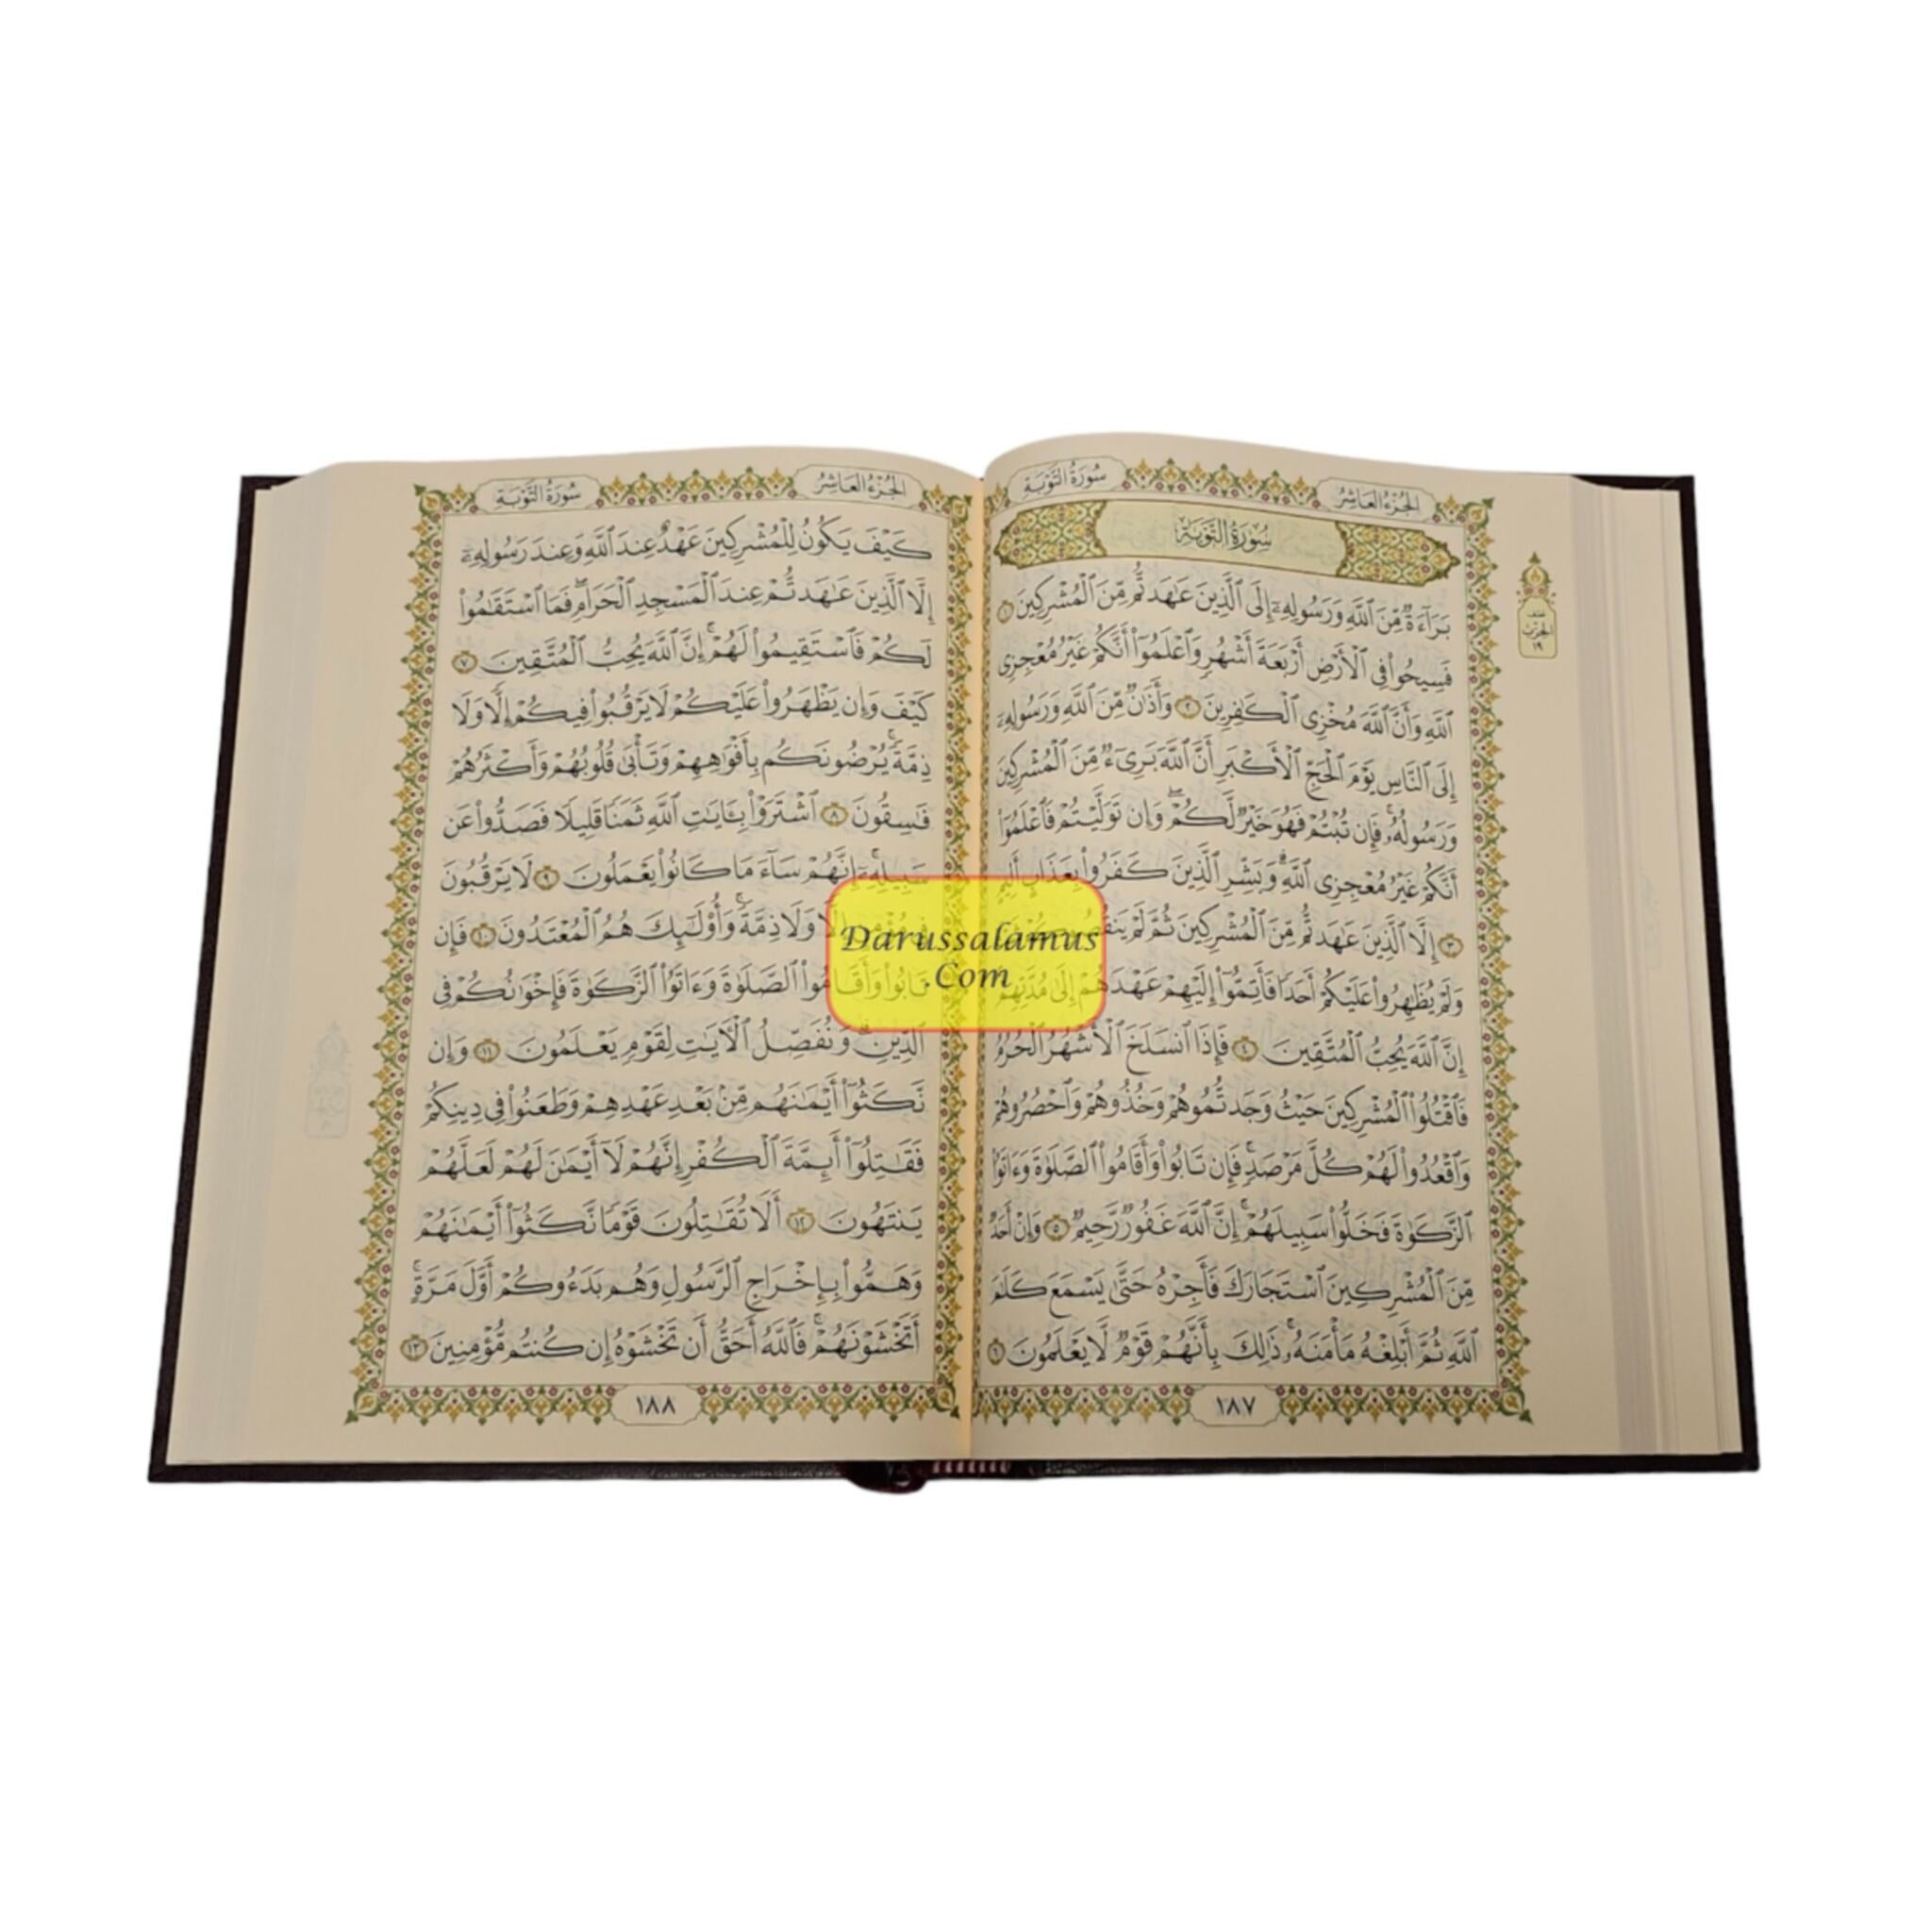 سُورَةُ التَّوْبَةِ
الجُزْءُ العَاشِرُ
سُورَةُ التَّوْبَةِ
نصف
الحزب
١٩
بَرَآءَةٌ مِّنَ ٱللَّهِ وَرَسُولِهِۦٓ إِلَى ٱلَّذِينَ عَٰهَدتُّم مِّنَ ٱلْمُشْرِكِينَ ١
فَسِيحُوا۟ فِى ٱلْأَرْضِ أَرْبَعَةَ أَشْهُرٍ وَٱعْلَمُوٓا۟ أَنَّكُمْ غَيْرُ مُعْجِزِى
ٱللَّهِ وَأَنَّ ٱللَّهَ مُخْزِى ٱلْكَٰفِرِينَ ٢ وَأَذَٰنٌ مِّنَ ٱللَّهِ وَرَسُولِهِۦٓ
إِلَى ٱلنَّاسِ يَوْمَ ٱلْحَجِّ ٱلْأَكْبَرِ أَنَّ ٱللَّهَ بَرِىٓءٌ مِّنَ ٱلْمُشْرِكِينَ
وَرَسُولُهُۥ ۚ فَإِن تُبْتُمْ فَهُوَ خَيْرٌ لَّكُمْ ۖ وَإِن تَوَلَّيْتُمْ فَٱعْلَمُوٓا۟
أَنَّكُمْ غَيْرُ مُعْجِزِى ٱللَّهِ ۗ وَبَشِّرِ ٱلَّذِينَ كَفَرُوا۟ بِعَذَابٍ أَلِيمٍ
٣ إِلَّا ٱلَّذِينَ عَٰهَدتُّم مِّنَ ٱلْمُشْرِكِينَ ثُمَّ لَمْ يَنقُصُوكُمْ
وَلَمْ يُظَٰهِرُوا۟ عَلَيْكُمْ أَحَدًا فَأَتِمُّوٓا۟ إِلَيْهِمْ عَهْدَهُمْ إِلَىٰ مُدَّتِهِمْ
إِنَّ ٱللَّهَ يُحِبُّ ٱلْمُتَّقِينَ ٤ فَإِذَا ٱنسَلَخَ ٱلْأَشْهُرُ ٱلْحُرُمُ
فَٱقْتُلُوا۟ ٱلْمُشْرِكِينَ حَيْثُ وَجَدتُّمُوهُمْ وَخُذُوهُمْ وَٱحْصُرُوهُمْ
وَٱقْعُدُوا۟ لَهُمْ كُلَّ مَرْصَدٍ ۚ فَإِن تَابُوا۟ وَأَقَامُوا۟ ٱلصَّلَوٰةَ وَءَاتَوُا۟
ٱلزَّكَوٰةَ فَخَلُّوا۟ سَبِيلَهُمْ ۚ إِنَّ ٱللَّهَ غَفُورٌ رَّحِيمٌ ٥ وَإِنْ أَحَدٌ
مِّنَ ٱلْمُشْرِكِينَ ٱسْتَجَارَكَ فَأَجِرْهُ حَتَّىٰ يَسْمَعَ كَلَٰمَ
ٱللَّهِ ثُمَّ أَبْلِغْهُ مَأْمَنَهُۥ ۚ ذَٰلِكَ بِأَنَّهُمْ قَوْمٌ لَّا يَعْلَمُونَ ٦
١٨٧
سُورَةُ التَّوْبَةِ
الجُزْءُ العَاشِرُ
كَيْفَ يَكُونُ لِلْمُشْرِكِينَ عَهْدٌ عِندَ ٱللَّهِ وَعِندَ رَسُولِهِۦٓ
إِلَّا ٱلَّذِينَ عَٰهَدتُّمْ عِندَ ٱلْمَسْجِدِ ٱلْحَرَامِ ۖ فَمَا ٱسْتَقَٰمُوا۟
لَكُمْ فَٱسْتَقِيمُوا۟ لَهُمْ ۚ إِنَّ ٱللَّهَ يُحِبُّ ٱلْمُتَّقِينَ ٧
كَيْفَ وَإِن يَظْهَرُوا۟ عَلَيْكُمْ لَا يَرْقُبُوا۟ فِيكُمْ إِلًّا وَلَا
ذِمَّةً ۚ يُرْضُونَكُم بِأَفْوَٰهِهِمْ وَتَأْبَىٰ قُلُوبُهُمْ وَأَكْثَرُهُمْ
فَٰسِقُونَ ٨ ٱشْتَرَوْا۟ بِـَٔايَٰتِ ٱللَّهِ ثَمَنًا قَلِيلًا فَصَدُّوا۟ عَن
سَبِيلِهِۦٓ ۚ إِنَّهُمْ سَآءَ مَا كَانُوا۟ يَعْمَلُونَ ٩ لَا يَرْقُبُونَ
فِى مُؤْمِنٍ إِلًّا وَلَا ذِمَّةً ۚ وَأُو۟لَٰٓئِكَ هُمُ ٱلْمُعْتَدُونَ ١٠ فَإِن
تَابُوا۟ وَأَقَامُوا۟ ٱلصَّلَوٰةَ وَءَاتَوُا۟ ٱلزَّكَوٰةَ فَإِخْوَٰنُكُمْ فِى
ٱلدِّينِ ۗ وَنُفَصِّلُ ٱلْـَٔايَٰتِ لِقَوْمٍ يَعْلَمُونَ ١١ وَإِن
نَّكَثُوٓا۟ أَيْمَٰنَهُم مِّنۢ بَعْدِ عَهْدِهِمْ وَطَعَنُوا۟ فِى دِينِكُمْ
فَقَٰتِلُوٓا۟ أَئِمَّةَ ٱلْكُفْرِ ۙ إِنَّهُمْ لَآ أَيْمَٰنَ لَهُمْ لَعَلَّهُمْ
يَنتَهُونَ ١٢ أَلَا تُقَٰتِلُونَ قَوْمًا نَّكَثُوٓا۟ أَيْمَٰنَهُمْ
وَهَمُّوا۟ بِإِخْرَاجِ ٱلرَّسُولِ وَهُم بَدَءُوكُمْ أَوَّلَ مَرَّةٍ ۚ
أَتَخْشَوْنَهُمْ ۚ فَٱللَّهُ أَحَقُّ أَن تَخْشَوْهُ إِن كُنتُم مُّؤْمِنِينَ ١٣
١٨٨
Darussalamus
.Com